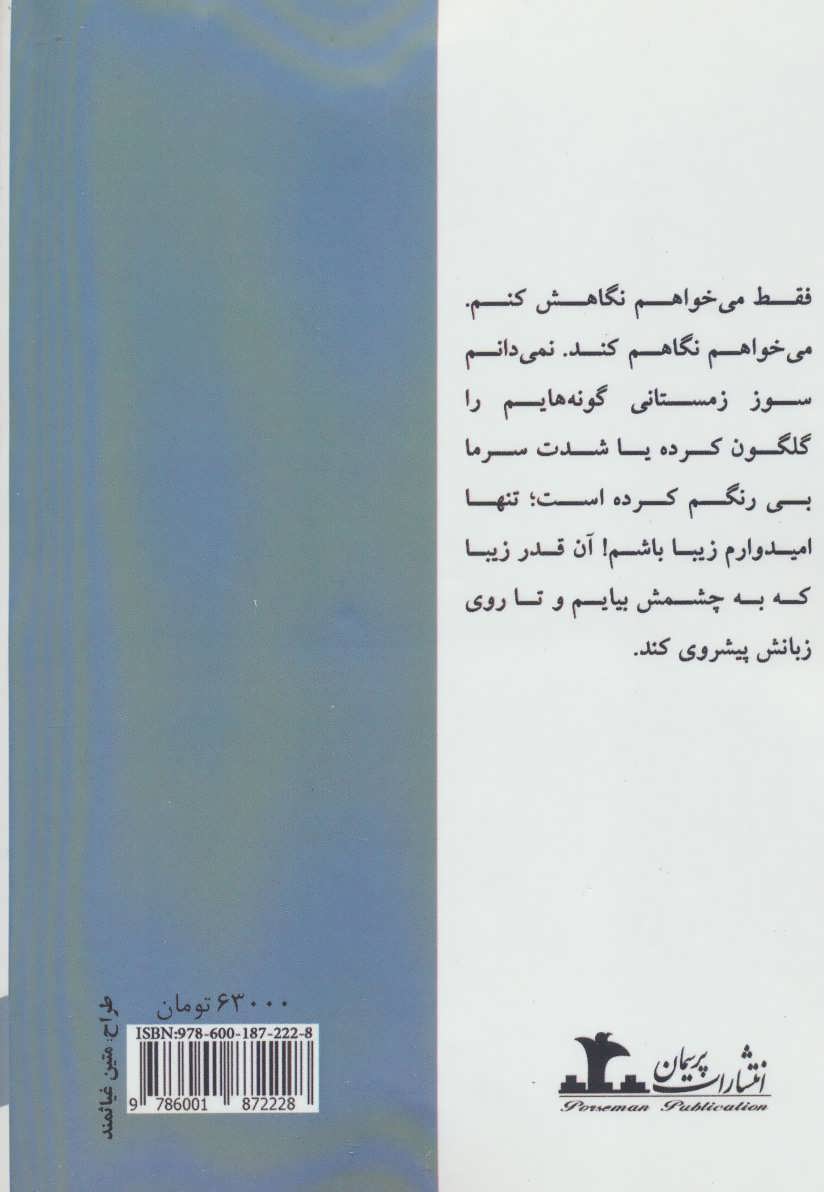 فقط می‌خواهم نگاهش کنم.
می‌خواهم نگاهم کند. نمی‌دانم
سوز زمستانی گونه‌هایم را
گلگون کرده یا شدت سرما
بی رنگم کرده است؛ تنها
امیدوارم زیبا باشم! آن قدر زیبا
که به چشمش بیایم و تا روی
زبانش پیشروی کند.
۶۳۰۰۰ تومان
ISBN:978-600-187-222-8
9 786001 872228
طراح: متین غیاثمند
انتشارات پرسمان
Porseman Publication